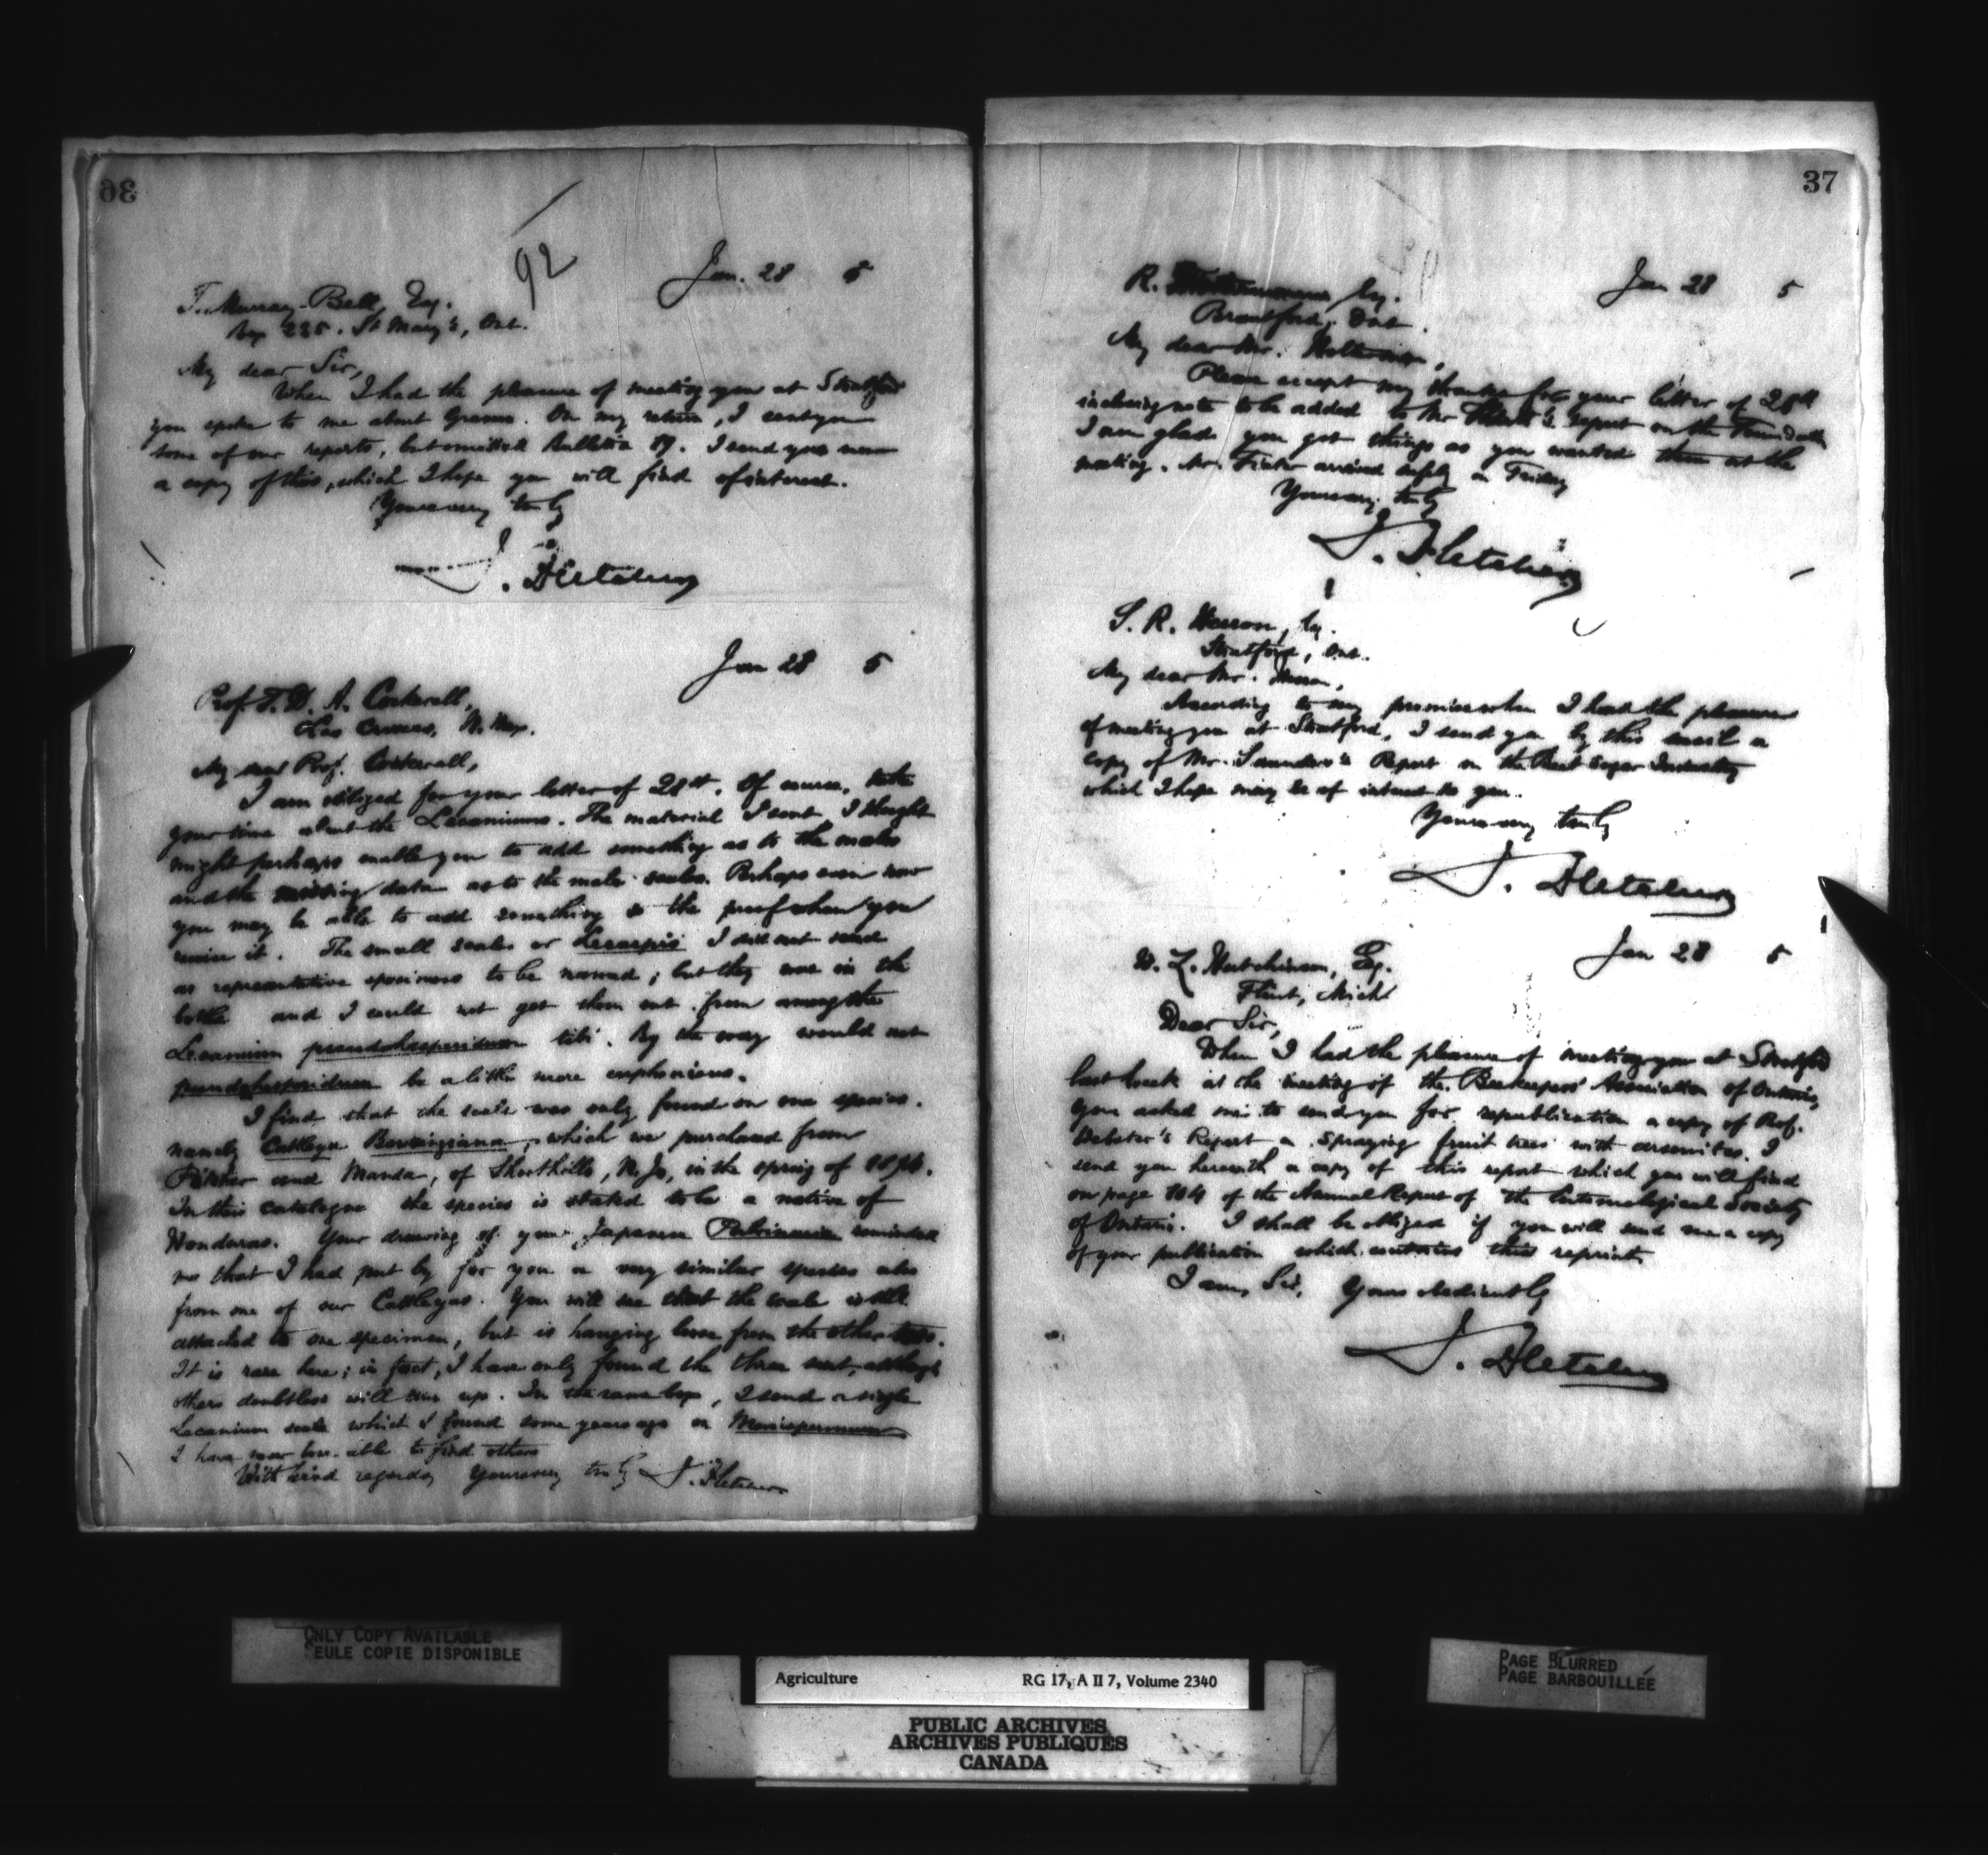 36
92
Jan. 28 5
T. Murray-Bell, Esq.
Box 225. St Mary's, Ont.
My dear Sir,
When I had the pleasure of meeting you at Stratford
you spoke to me about Grasses. On my return, I sent you
some of our reports, but omitted Bulletin 19. I send you now
a copy of this, which I hope you will find of interest.
Yours very truly
J. Fletcher
Jan 28 5
Prof. T. D. A. Cockerell,
Las Cruces, N. Mex.
My dear Prof. Cockerell,
I am obliged for your letter of 21st. Of course, take
your time about the Lecaniums. The material I sent, I thought
might perhaps enable you to add something as to the males
and the missing data as to the male scales. Perhaps even now
you may be able to add something to the proof when you
revise it. The small scales or I did not send
as representative specimens to be named; but they were in the
bottle and I could not get them out from among the
Lecanium pseudohesperidum By the way would not
pseudhesperidum be a little more euphonious.
I find that the scale was only found on one species.
namely Cattleya Bowringiana, which we purchased from
Pitcher and Manda, of Shorthills, N. J., in the spring of
In this catalogue the species is stated to be a native of
Honduras. Your drawing of your Japanese Pulvinaria reminded
me that I had put by for you a very similar species also
from one of our Cattleyas. You will see that the scale is still
attached to one specimen, but is hanging loose from the other two.
It is rare here; in fact, I have only found the three sent, although
others doubtless will turn up. In the same box, I send a single
Lecanium scale which I found some years ago on Menispermum
I have never been able to find others
With kind regards, Yours very truly J. Fletcher
37
Jan 28 5
R. Esq.
Brantford, Ont.
My dear Mr. Holtermann,
Please accept my thanks for your letter of 25th
inclosing note to be added to Mr report on the Foundation
I am glad you got things as you wanted them at the
meeting. Mr. arrived safely on Friday
Yours very truly
J. Fletcher
S. R. Hesson, Esq.
Stratford, Ont.
My dear Mr. Hesson,
According to my promise when I had the pleasure
of meeting you at Stratford, I send you by this mail a
copy of Mr. Saunders's Report on the Beet Sugar Industry
which I hope may be of interest to you.
Yours very truly
J. Fletcher
Jan 28 5
W. Z. Hutchinson, Esq.
Flint, Mich
Dear Sir,
When I had the pleasure of meeting you at Stratford
last week at the meeting of the Beekeepers' Association of Ontario,
you asked me to send you for republication a copy of Prof.
Webster's Report on Spraying fruit trees with arsenites. I
send you herewith a copy of this report which you will find
on page 104 of the Annual Report of the Entomological Society
of Ontario. I shall be obliged if you will send me a copy
of your publication which contains this reprint
I am, Sir, Yours obediently
J. Fletcher
ONLY COPY AVAILABLE
SEULE COPIE DISPONIBLE
PAGE BLURRED
PAGE BARBOUILLÉE
Agriculture RG 17, A II 7, Volume 2340
PUBLIC ARCHIVES
ARCHIVES PUBLIQUES
CANADA